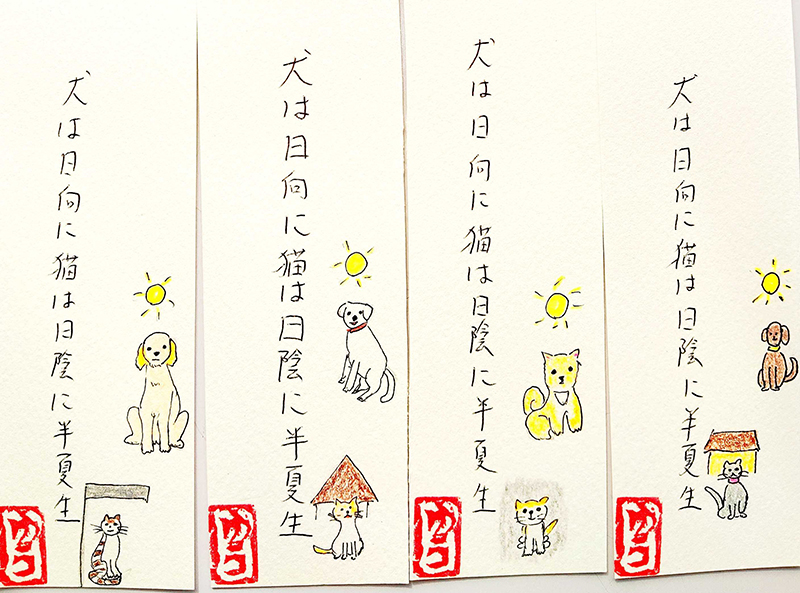 犬は日向に猫は日陰に半夏生
犬は日向に猫は日陰に半夏生
犬は日向に猫は日陰に半夏生
犬は日向に猫は日陰に半夏生